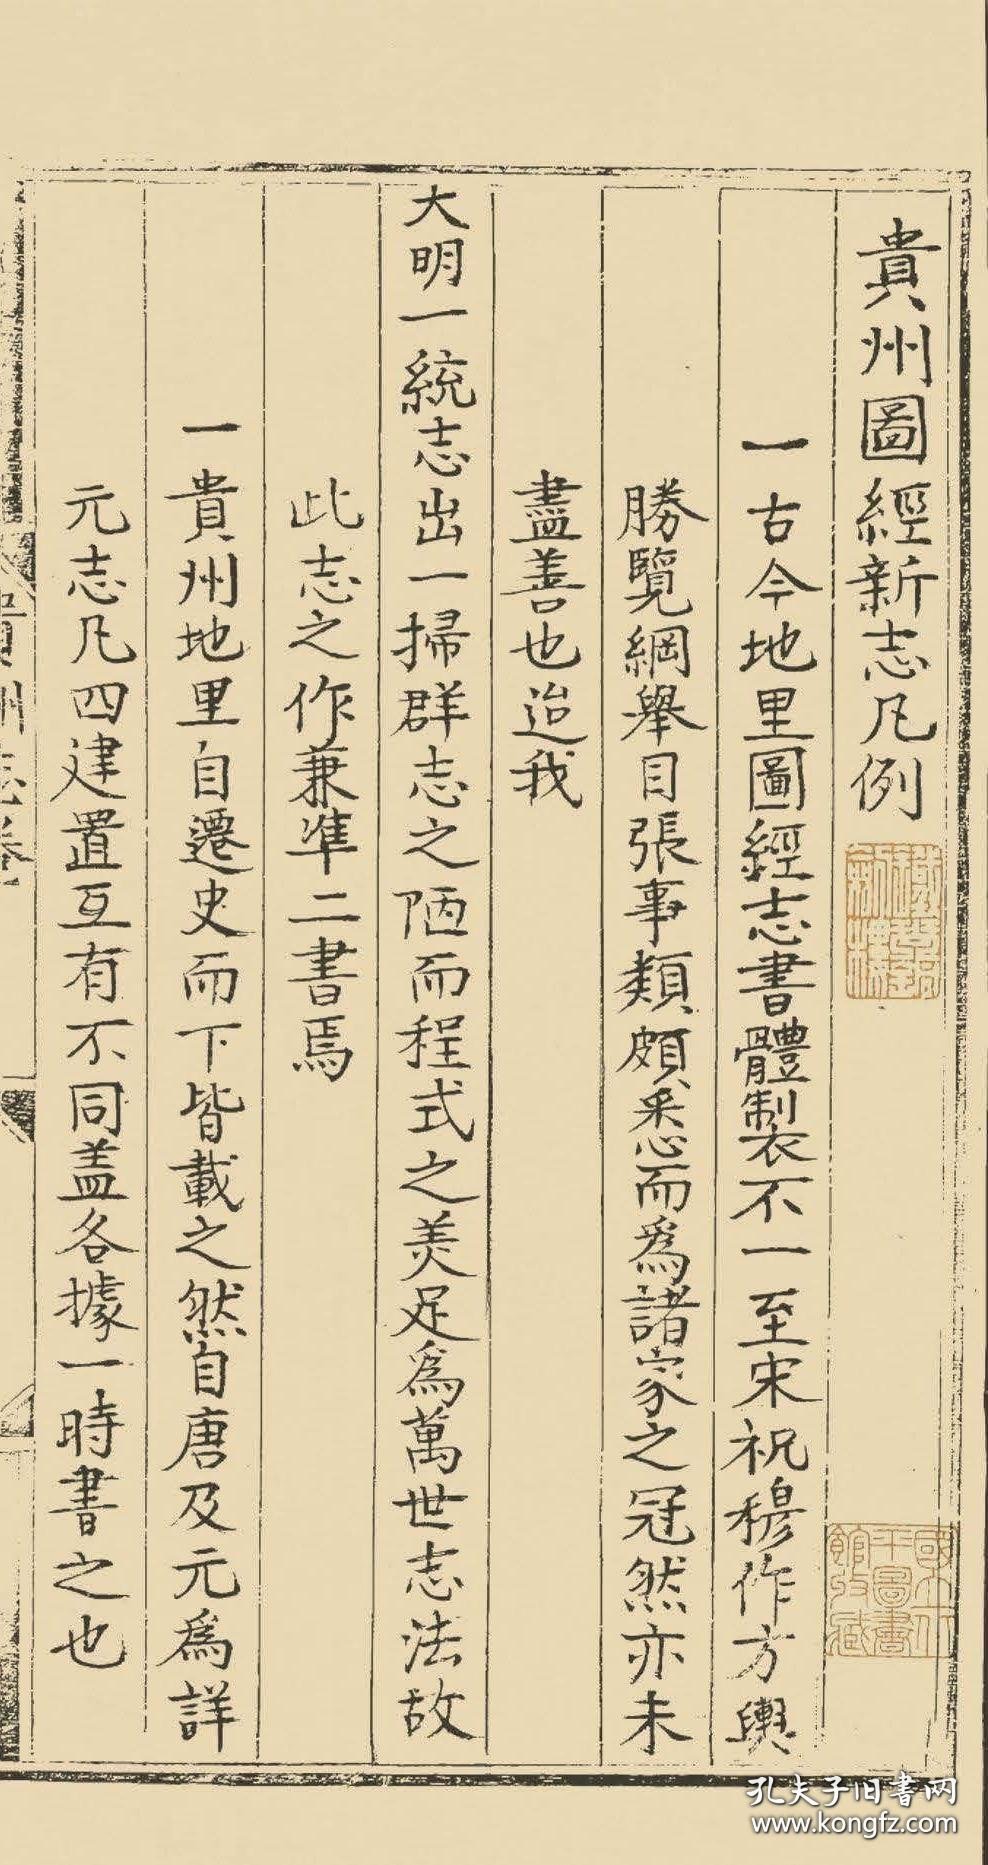 貴州圖經新志凡例
一古今地里圖經志書體製不一至宋祝穆作方輿
勝覽綱舉目張事類頗悉而爲諸家之冠然亦未
盡善也迨我
大明一統志出一掃群志之陋而程式之美足爲萬世志法故
此志之作兼準二書焉
一貴州地里自遷史而下皆載之然自唐及元爲詳
元志凡四建置互有不同盖各據一時書之也
國立北平圖書館收藏
孔夫子旧书网
www.kongfz.com